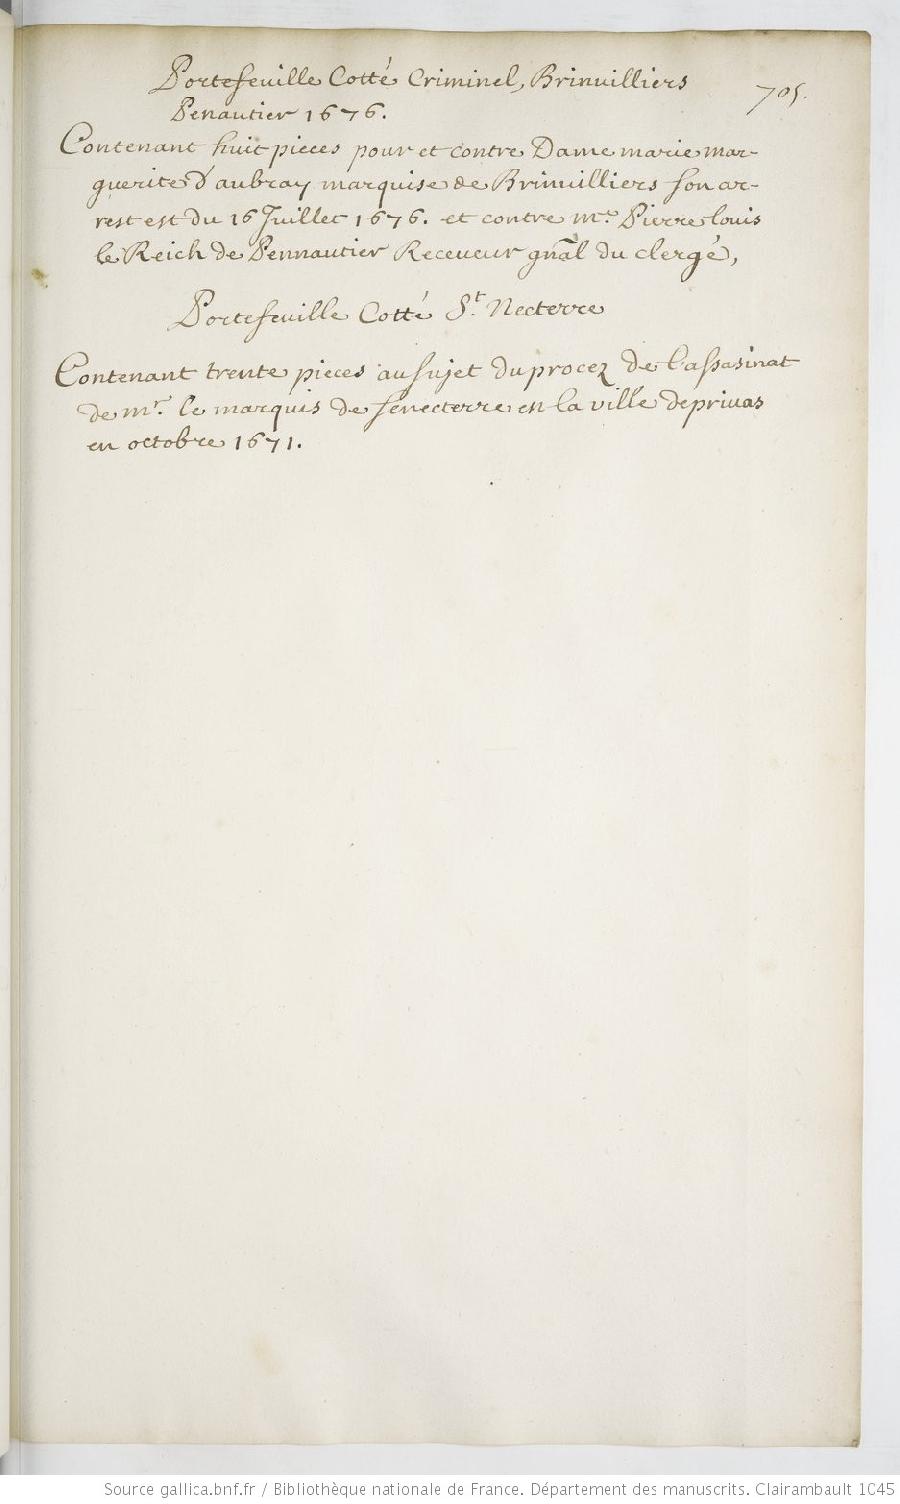 Portefeuille Cotté Criminel, Brinvilliers
705.
Penautier 1676.
Contenant huit pieces pour et contre Dame marie mar-
guerite d'aubray marquise de Brinvilliers son ar-
rest est du 16 Juillet 1676. et contre mre. Pierre louis
le Reich de Pennautier Receveur gnãl du clergé,
Portefeuille Cotté St. Necterre
Contenant trente pieces au sujet du procez de l'assasinat
de mr. le marquis de senecterre en la ville de privas
en octobre 1671.
Source gallica.bnf.fr / Bibliothèque nationale de France. Département des manuscrits. Clairambault 1045